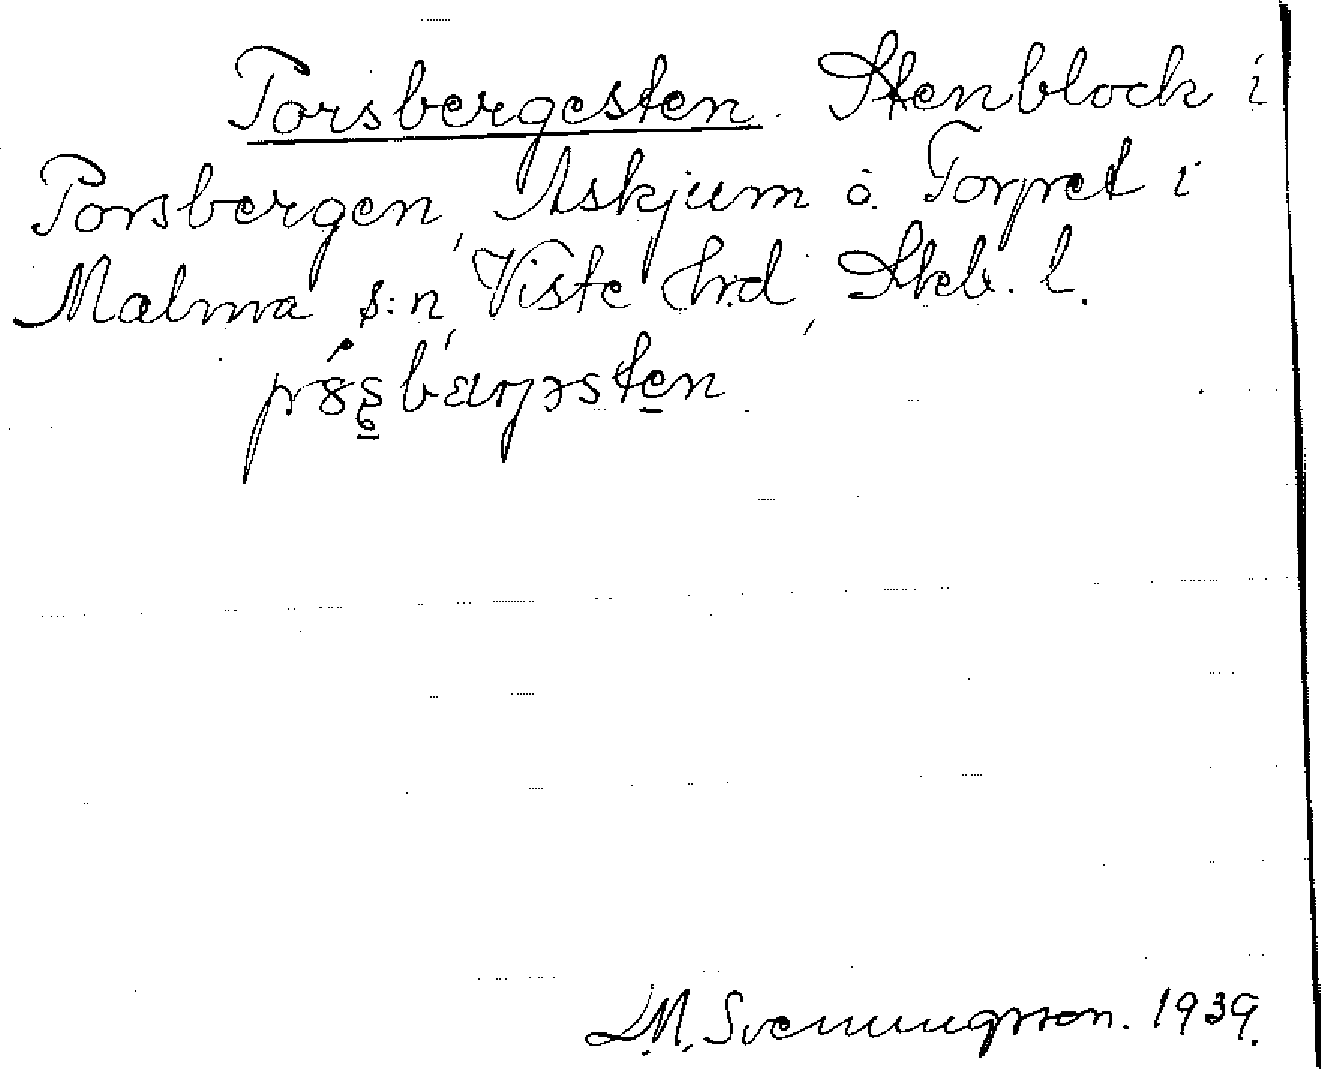 Porsbergesten. Stenblock i
Porsbergen, Askjum o. Torpet i
Malma s:n, Viste hrd, Skb. l.
L.M. Svenningsson. 1939.